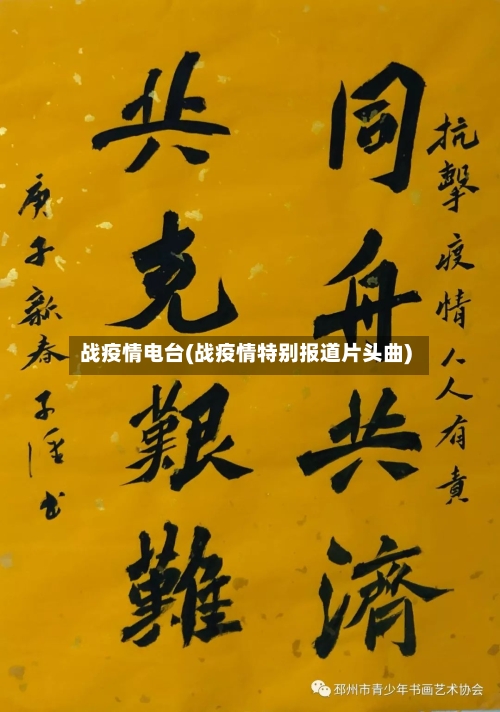 抗擊疫情人人有責
同舟共濟
共克艱難
庚子新春子涵书
战疫情电台(战疫情特别报道片头曲)
邳州市青少年书画艺术协会